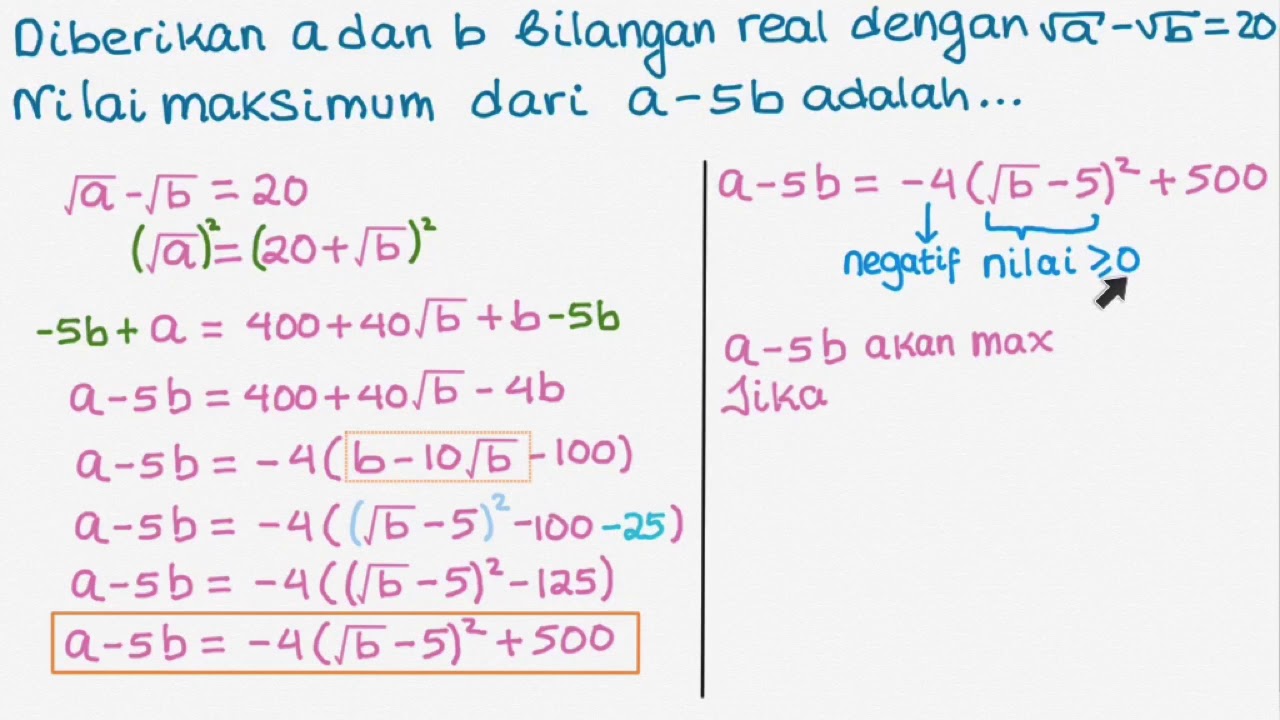 Diberikan a dan b bilangan real dengan √a - √b = 20
Nilai maksimum dari a - 5b adalah...
√a - √b = 20
(√a)² = (20 + √b)²
-5b + a = 400 + 40√b + b - 5b
a - 5b = 400 + 40√b - 4b
a - 5b = -4(b - 10√b - 100)
a - 5b = -4((√b - 5)² - 100 - 25)
a - 5b = -4((√b - 5)² - 125)
a - 5b = -4(√b - 5)² + 500
a - 5b = -4(√b - 5)² + 500
negatif nilai ≥0
a - 5b akan max
Jika